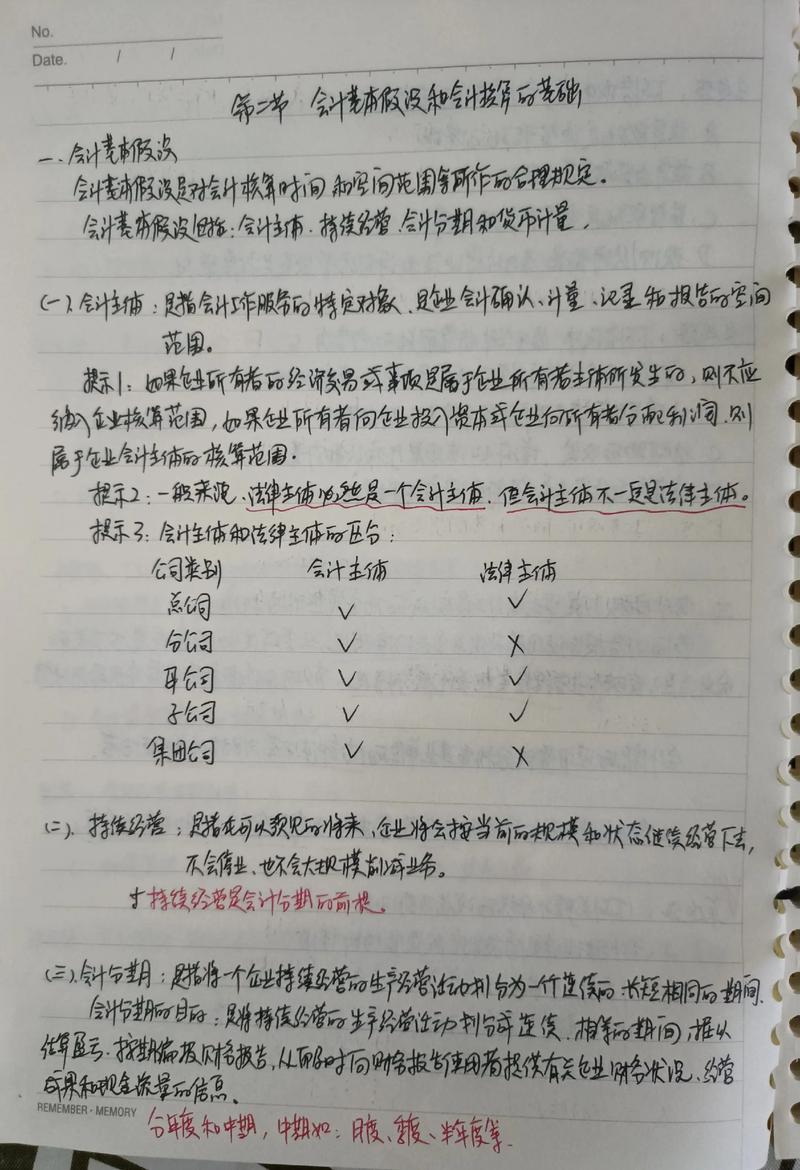 No.
Date. / /
第二节 会计基本假设和会计核算的基础
一、会计基本假设
会计基本假设是对会计核算时间和空间范围等所作的合理规定。
会计基本假设包括:会计主体、持续经营、会计分期和货币计量。
(一)、会计主体:是指会计工作服务的特定对象,是企业会计确认、计量、记录和报告的空间
范围。
提示1:如果企业所有者的经济交易或事项是属于企业所有者主体所发生的,则不应
纳入企业核算范围,如果企业所有者向企业投入资本或企业向所有者分配利润,则
属于企业会计主体的核算范围。
提示2:一般来说,法律主体必然是一个会计主体,但会计主体不一定是法律主体。
提示3:会计主体和法律主体的区分:
公司类别 会计主体 法律主体
总公司 ✓ ✓
分公司 ✓ ×
母公司 ✓ ✓
子公司 ✓ ✓
集团公司 ✓ ×
(二)、持续经营:是指在可以预见的将来,企业将会按当前的规模和状态继续经营下去,
不会停业、也不会大规模削减业务。
持续经营是会计分期的前提。
(三)、会计分期:是指将一个企业持续经营的生产经营活动划分为一个个连续的、长短相同的期间。
会计分期的目的:是将持续经营的生产经营活动划分成连续、相等的期间,据以
结算盈亏、按期编报财务报告,从而及时向财务报告使用者提供有关企业财务状况、经营
成果和现金流量的信息。
REMEMBER·MEMORY
分年度和中期,中期如:月度、季度、半年度等.